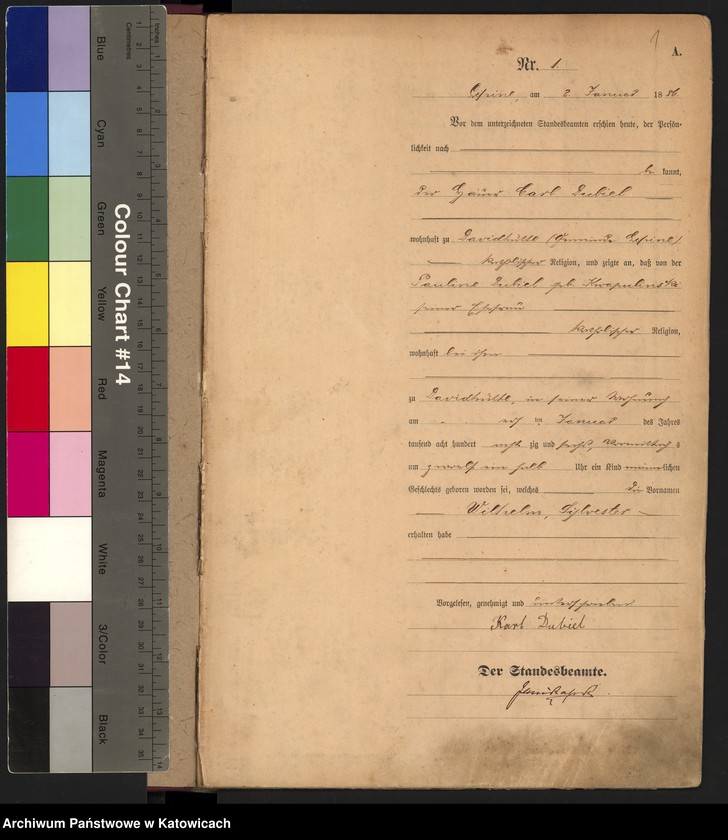 Inches
Centimetres
Colour Chart #14
Blue
Cyan
Green
Yellow
Red
Magenta
White
3/Color
Black
1
A.
Nr. 1
am 2 Januar 1886
Vor dem unterzeichneten Standesbeamten erschien heute, der Persön-
lichkeit nach
be kannt,
der Häuer Carl Dubiel
wohnhaft zu Davidhütte (Gemeinde
katholischer Religion, und zeigte an, daß von der
Pauline Dubiel geb
seiner Ehefrau
katholischer Religion,
wohnhaft bei ihm
zu Davidhütte, in seiner Wohnung
am Januar des Jahres
tausend acht hundert acht zig und sechs, Vormittags
um zwölf ein halb Uhr ein Kind männlichen
Geschlechts geboren worden sei, welches die Vornamen
Wilhelm, Sylvester
erhalten habe
Vorgelesen, genehmigt und unterschrieben
Karl Dubiel
Der Standesbeamte.
Archiwum Państwowe w Katowicach